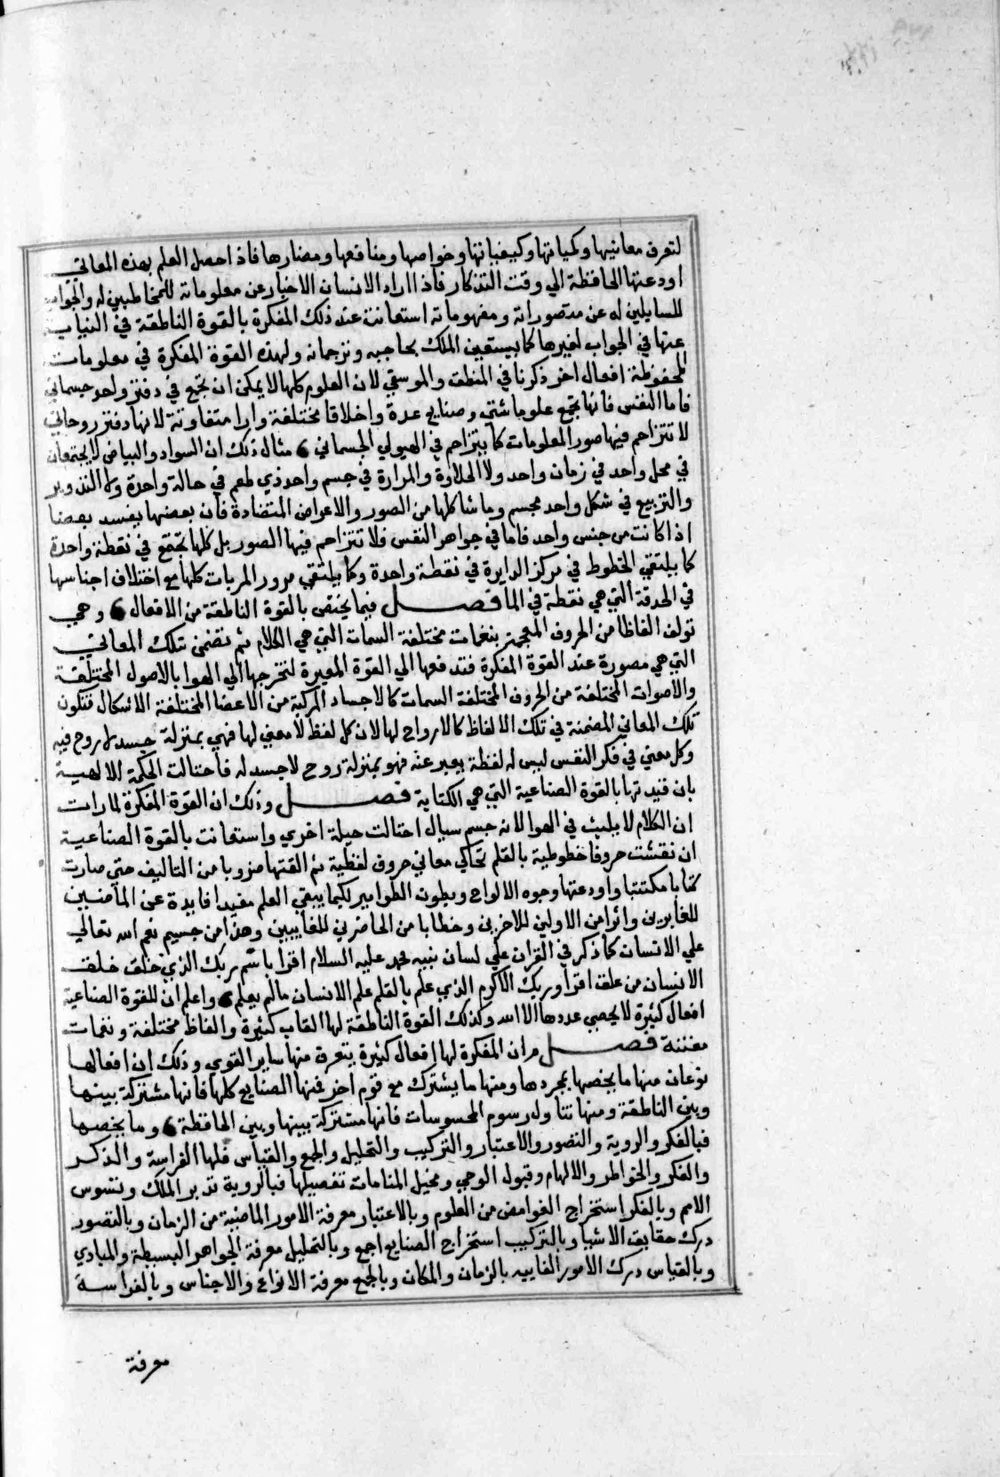 لتعرف معانيها وكمياتها وكيفياتها وخواصها ومنافعها ومضارها فاذا حصل العلم بهذه المعاني
اودعتها الحافظة الي وقت التذكار فاذا اراد الانسان الاخبار عن معلوماته للمخاطبين له والجواب
للسايلين له عن متصوراته ومفهوماته استعانت عند ذلك المفكرة بالقوة الناطقة في النياب
عنها في الجواب لغيرها كما يستعين الملك بحاجبه وترجمانه ولهذه القوة المفكرة في معلومات
المحفوظة افعال اخر ذكرنا في المنطق والموسقي لان العلوم كلها لا يمكن ان تجمع في دفتر واحد جسماني
فاما النفس فانها تجمع علوما شتي وصنايع عدة واخلاقا مختلفة وارا متفاوتة لانها دفتر روحاني
لا تتزاحم فيها صور المعلومات كما يتزاحم في الهيولي الجسماني ٥ مثال ذلك ان السواد والبياض لا يجتمعان
في محل واحد في زمان واحد ولا الحلاوة والمرارة في جسم واحد ذي طعم في حالة واحدة ولا التدوير
والتربيع في شكل واحد مجسم وما شاكلها من الصور والاعراض المتضادة فان بعضها يفسد بعضا
اذا كانت من جنس واحد فاما في جواهر النفس فلا تتزاحم فيها الصور بل كلها تجتمع في نقطة واحدة
كما يلتقي الخطوط في مركز الدايرة في نقطة واحدة وكما يلتقي صور المريات كلها مع اختلاف اجناسها
في الحدقة التي هي نقطة في الما فصل فيما يختص بالقوة الناطقة من الافعال ٥ وهي
تولف الفاظا من الحروف المعجم بنغمات مختلفة السمات التي هي الكلام ثم تضمن تلك المعاني
التي هي مصورة عند القوة المفكرة فتدفعها الي القوة المعبرة لتخرجها الي الهوا بالاصول المختلفة
والاصوات المختلفة من الحروف المختلفة السمات كالاجساد المركبة من الاعضا المختلفة الاشكال فتكون
تلك المعاني المضمنة في تلك الالفاظ كالارواح لها لان كل لفظ لا معني لها فهي بمنزلة جسد لا روح فيه
وكل معني في فكر النفس ليس له لفظة يعبر عنه فهو بمنزلة روح لا جسد له فاحتالت الحكمة الالهية
بان قيدتها بالقوة الصناعية التي هي الكتابة فصل وذلك ان القوة المفكرة لما رات
ان الكلام لا يلبث في الهوا لانه جسم سيال احتالت حيلة اخري واستعانت بالقوة الصناعية
ان نقشت حروفا خطوطية بالقلم تحاكي معاني حروف لفظية ثم الفتها ضروبا من التاليف حتي صارت
كتابا مكتتبا واودعتها وجوه الالواح وبطون الطوامير لكيما يبقي العلم مفيدا فايدة عن الماضين
للغابرين واثرا من الاولين للاخرين وخطابا من الحاضرين للغايبين وهذا من جسيم نعم الله تعالي
علي الانسان كما ذكر في القران علي لسان نبيه محمد عليه السلام اقرا باسم ربك الذي خلق خلق
الانسان من علق اقرا وربك الاكرم الذي علم بالقلم علم الانسان ما لم يعلم ٥ واعلم ان للقوة الصناعية
افعال كثيرة لا يحصي عددها الا الله وكذلك القوة الناطقة لها القاب كثيرة والفاظ مختلفة ونغمات
مفننة فصل ان المفكرة لها افعال كثيرة يتعرف منها ساير القوي وذلك ان افعالها
نوعان منها ما يخصها بمجردها ومنها ما يشترك مع قوم اخر فمنها الصنايع كلها فانها مشتركة بينها
وبين الناطقة ومنها تناوله رسوم المحسوسات فانها مشتركة بينها وبين الحافظة ٥ وما يخصها
فبالفكر والروية والتصور والاعتبار والتركيب والتحليل والجمع والقياس فلها الفراسة والذكر
والفكر والخواطر والالهام وقبول الوحي ومخيل المنامات تفصيلها فبالروية تدبر الملك وتسوس
الامم وبالفكر استخراج الغوامض من العلوم وبالاعتبار معرفة الامور الماضية من الزمان وبالتصور
درك حقايق الاشيا وبالتركيب استخراج الصنايع اجمع وبالتحليل معرفة الجواهر البسيطة والمبادي
وبالقياس درك الامور الغايبه بالزمان والمكان وبالجمع معرفة الانواع والاجناس وبالفراسة
معرفة